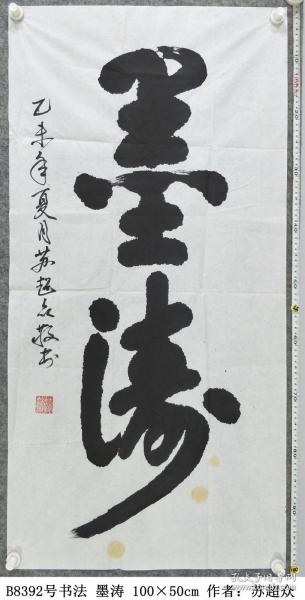 墨涛
乙未年夏月苏超众敬书
B8392号书法 墨涛 100×50cm 作者：苏超众